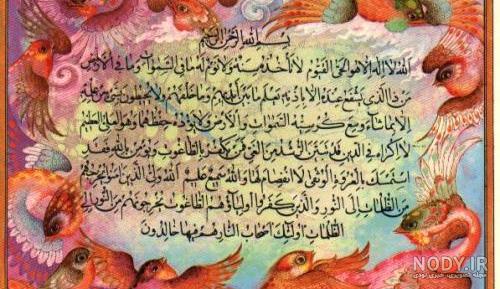 بسم الله الرحمن الرحیم
الله لا اله الا هو الحی القیوم لا تأخذه سنة ولا نوم له ما فی السموات وما فی الارض
من ذا الذی یشفع عنده الا باذنه یعلم ما بین ایدیهم وما خلفهم ولا یحیطون بشئ من علمه
الا بما شاء وسع کرسیه السموات والارض ولا یؤده حفظهما وهو العلی العظیم
لا اکراه فی الدین قد تبین الرشد من الغی فمن یکفر بالطاغوت ویؤمن بالله فقد
استمسک بالعروة الوثقی لا انفصام لها والله سمیع علیم الله ولی الذین امنوا یخرجهم
من الظلمات الی النور والذین کفروا اولیاؤهم الطاغوت یخرجونهم من النور الی
الظلمات اولئک اصحاب النار هم فیها خالدون
NODY.IR
مجله تصویری، خبری نودی